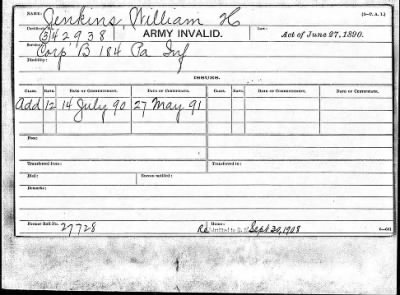 NAME: Jenkins, William H (3—P. A. I.)
Certificate No. 342938 ARMY INVALID. Act of June 27, 1890.
Service: Corp' B 184 Pa Inf
Disability:
ISSUES.
CLASS. RATE. DATE OF COMMENCEMENT. DATE OF CERTIFICATE. CLASS. RATE. DATE OF COMMENCEMENT. DATE OF CERTIFICATE.
Add 12 14 July 90 27 May 91
Fee:
Transferred from: Transferred to:
Died:
Remarks:
Former Roll No. 27728 Home: Sept 29, 1908